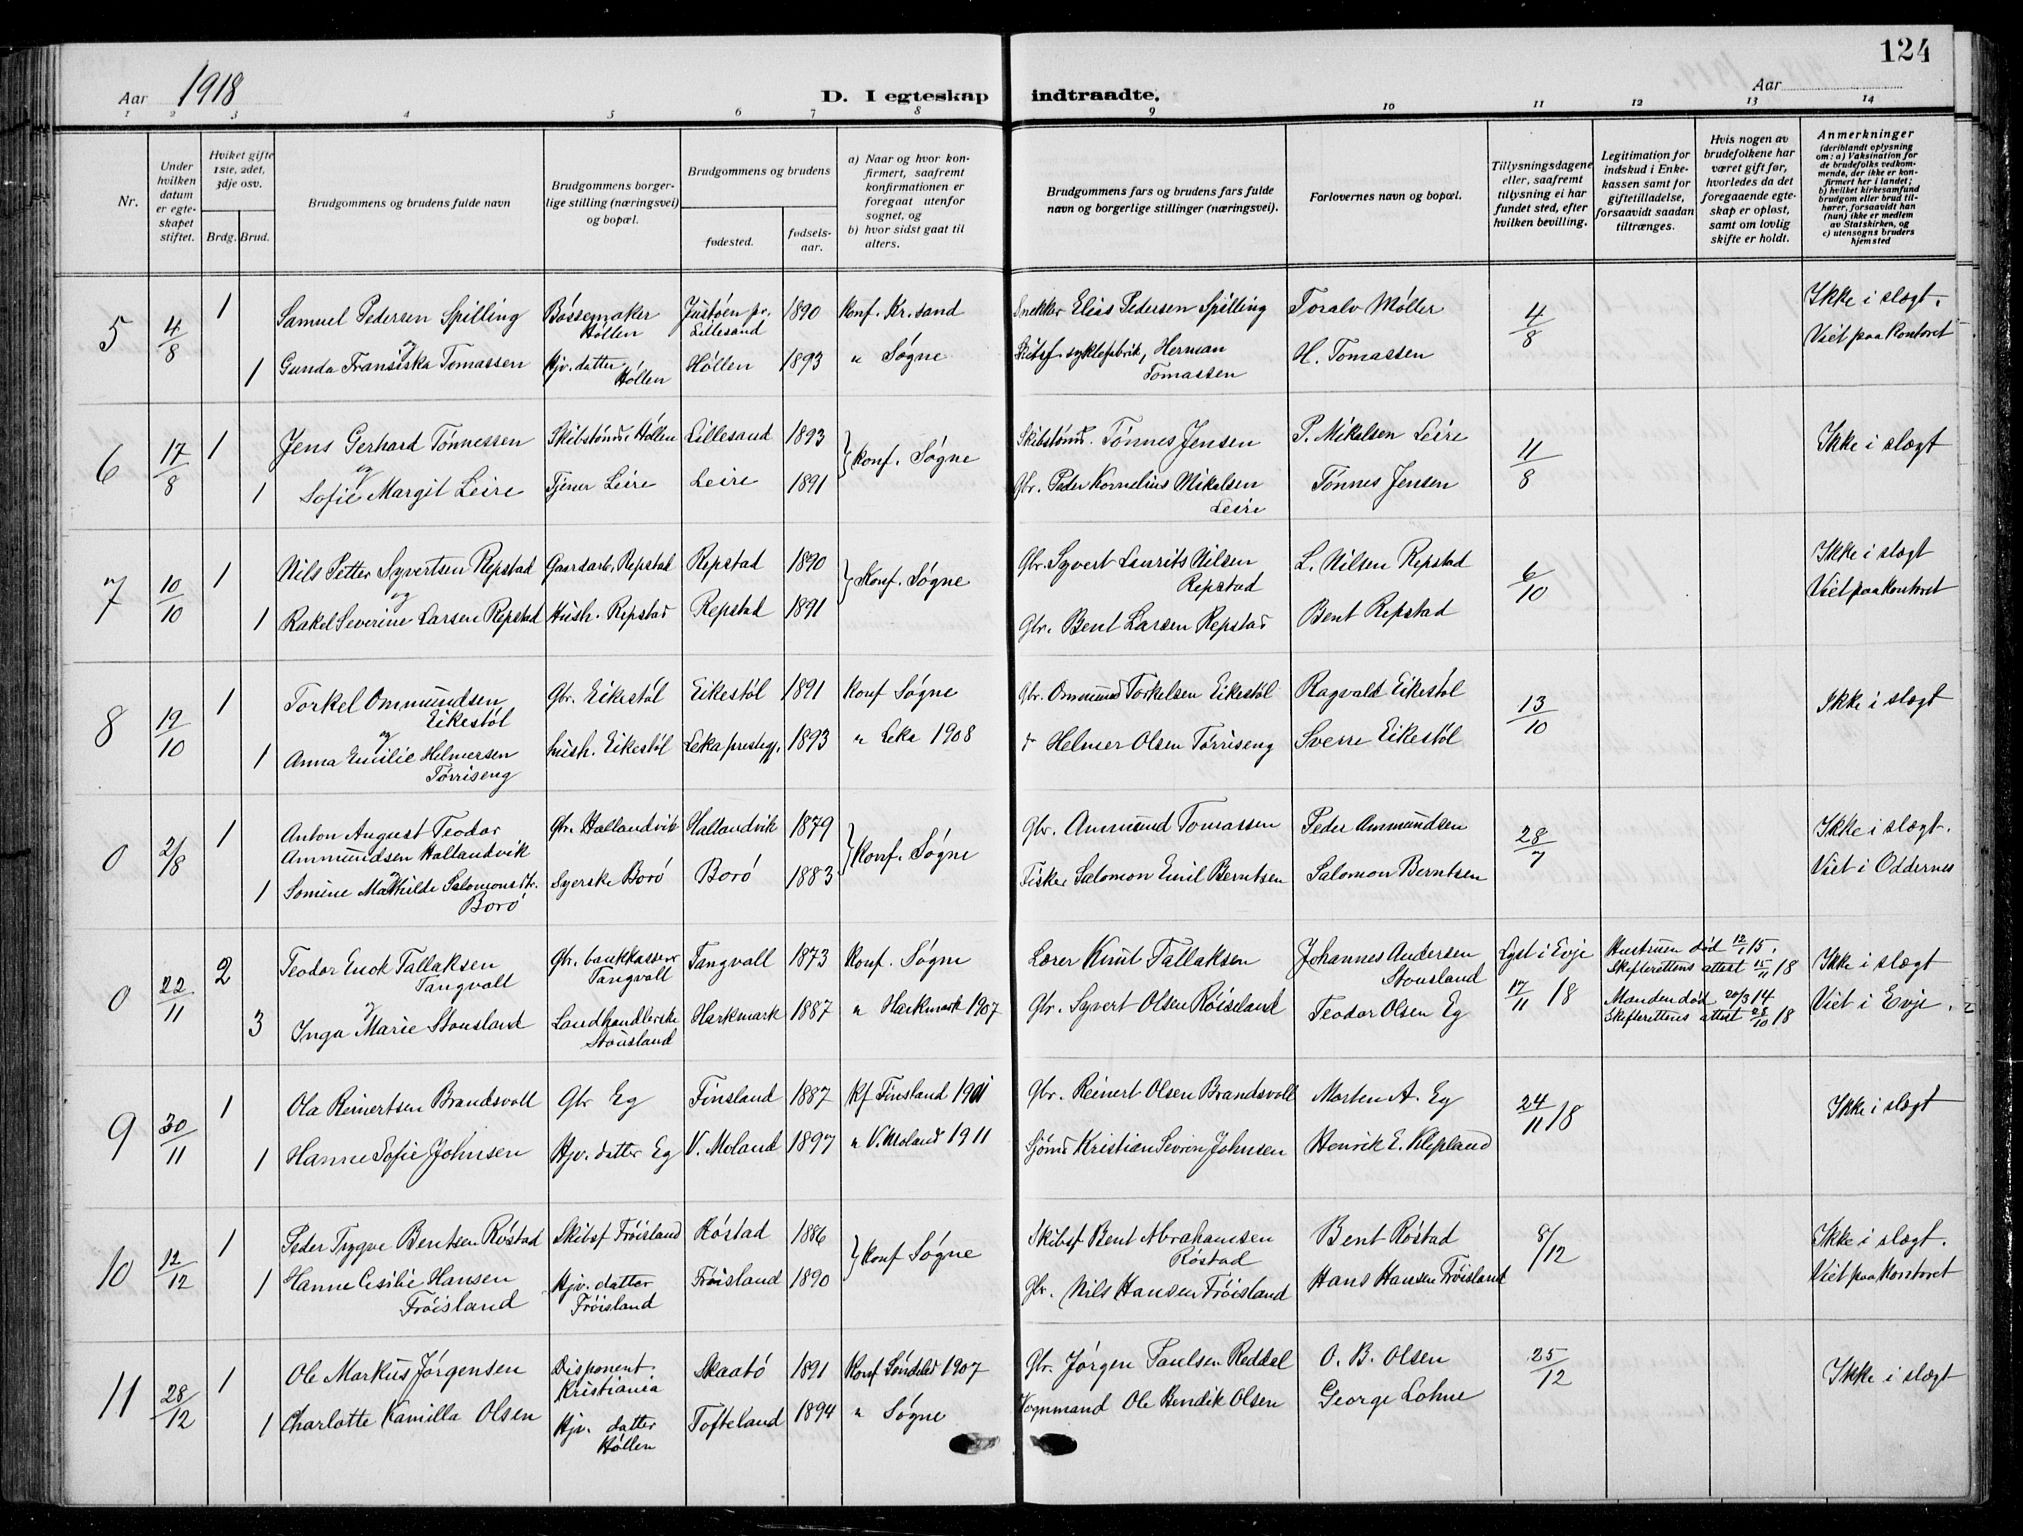 124
Aar 1918
D. I egteskap indtraadte.
Aar
1 2 3 4 5 6 7 8 9 10 11 12 13 14
Nr.
Under hvilken datum er egteskapet stiftet.
Hviket gifte 1ste, 2det, 3dje osv.
Brdg. Brud.
Brudgommens og brudens fulde navn
Brudgommens borgerlige stilling (næringsvei) og bopæl.
Brudgommens og brudens
fødested.
fødselsaar.
a) Naar og hvor konfirmert, saafremt konfirmationen er foregaat utenfor sognet, og
b) hvor sidst gaat til alters.
Brudgommens fars og brudens fars fulde navn og borgerlige stillinger (næringsvei).
Forlovernes navn og bopæl.
Tillysningsdagene eller, saafremt tillysning ei har fundet sted, efter hvilken bevilling.
Legitimation for indskud i Enkekassen samt for giftetilladelse, forsaavidt saadan tiltrænges.
Hvis nogen av brudefolkene har været gift før, hvorledes da det foregaaende egteskap er opløst, samt om lovlig skifte er holdt.
Anmerkninger
(deriblandt oplysning om: a) Vaksination for de brudefolks vedkommende, der ikke er konfirmert her i landet; b) hvilket kirkesamfund brudgom eller brud tilhører, forsaavidt han (hun) ikke er medlem av Statskirken, og c) utensogns bruders hjemsted
5 4/8 1 Samuel Pedersen Spilling Bøssemaker Høllen Justøen pr. Lillesand 1890 Konf. Kr.sand Snekker Elias Pedersen Spilling Toralv Møller 4/8 Ikke i slægt. Viet paa kontoret
og
1 Gunda Fransiska Tomassen Hjv. datter Høllen Høllen 1893 " Søgne Skibsf. Herman Tomassen H. Tomassen
6 17/8 1 Jens Gerhard Tønnessen Skibstømr. Høllen Lillesand 1893 Konf. Søgne Skibstømr. Tønnes Jensen P. Mikelsen Leire 11/8 Ikke i slægt
og
1 Sofie Margit Leire Tjener Leire Leire 1891 Gbr. Peder Kornelius Mikelsen Leire Tønnes Jensen
7 10/10 1 Nils Petter Syvertsen Repstad Gaardarb. Repstad Repstad 1890 Konf. Søgne Gbr. Syvert Laurits Nilsen Repstad L. Nilsen Repstad 6/10 Ikke i slægt Viet paa kontoret
og
1 Rakel Severine Larsen Repstad Hush. Repstad Repstad 1891 Gbr. Bent Larsen Repstad Bent Repstad
8 19/10 1 Torkel Ommundsen Eikestøl Gbr. Eikestøl Eikestøl 1891 Konf Søgne Gbr. Ommund Torkelsen Eikestøl Ragvald Eikestøl 13/10 Ikke i slægt
og
1 Anna Emilie Helmersen Tørriseng hush. Eikestøl Leka prestegj. 1893 " Leka 1908 " Helmer Olsen Tørriseng Sverre Eikestøl
0 2/8 1 Anton August Teodor Ammundsen Hallandvik Gbr. Hallandvik Hallandvik 1879 Konf. Søgne Gbr. Ammund Tomassen Peder Ammundsen 28/7 Ikke i slægt. Viet i Oddernes
og
1 Somine Mathilde Salomonsdtr. Borø Syerske Borø Borø 1883 Fisker Salomon Emil Berntsen Salomon Berntsen
0 22/11 2 Teodor Enok Tallaksen Tangvall Gbr. bankkasserer Tangvall Tangvall 1873 Konf. Søgne Lærer Knut Tallaksen Johannes Andersen Stousland Lyst i Evje 17/11 18 Hustruen død 12/1 15. Skifterettens attest 15/11 18 Ikke i slægt Viet i Evje.
og
3 Inga Marie Stousland Landhandlerske Stousland Harkmark 1887 " Harkmark 1907 Gbr. Syvert Olsen Røiseland Teodor Olsen Eg Manden død 20/3 14 Skifterettens attest 28/10 18
9 30/11 1 Ola Reinertsen Brandsvoll Gbr Eg Finsland 1887 Kf Finsland 1901 Gbr. Reinert Olsen Brandsvoll Morten A. Eg 24/11 18 Ikke i slægt
1 Hanne Sofie Johnsen Hjv. datter Eg V. Moland 1897 " V. Moland 1911 Sjømd Kristian Severin Johnsen Henrik E. Klepland
10 12/12 1 Peder Trygve Bentsen Røstad Skibsf Frøisland Røstad 1886 Konf Søgne Skibsf Bent Abrahamsen Røstad Bent Røstad 8/12 Ikke i slægt. Viet paa kontoret
1 Hanne Cesilie Hansen Frøisland Hjv. datter Frøisland Frøisland 1890 Gbr. Nils Hansen Frøisland Hans Hansen Frøisland
11 28/12 1 Ole Markus Jørgensen Disponent. Kristiania Skaatø 1891 Konf Søndeled 1907 Gbr. Jørgen Paulsen Reddal O. B. Olsen 25/12 Ikke i slægt
1 Charlotte Kamilla Olsen Hjv. datter Høllen Tofteland 1894 " Søgne Vognmand Ole Bendik Olsen George Lohne